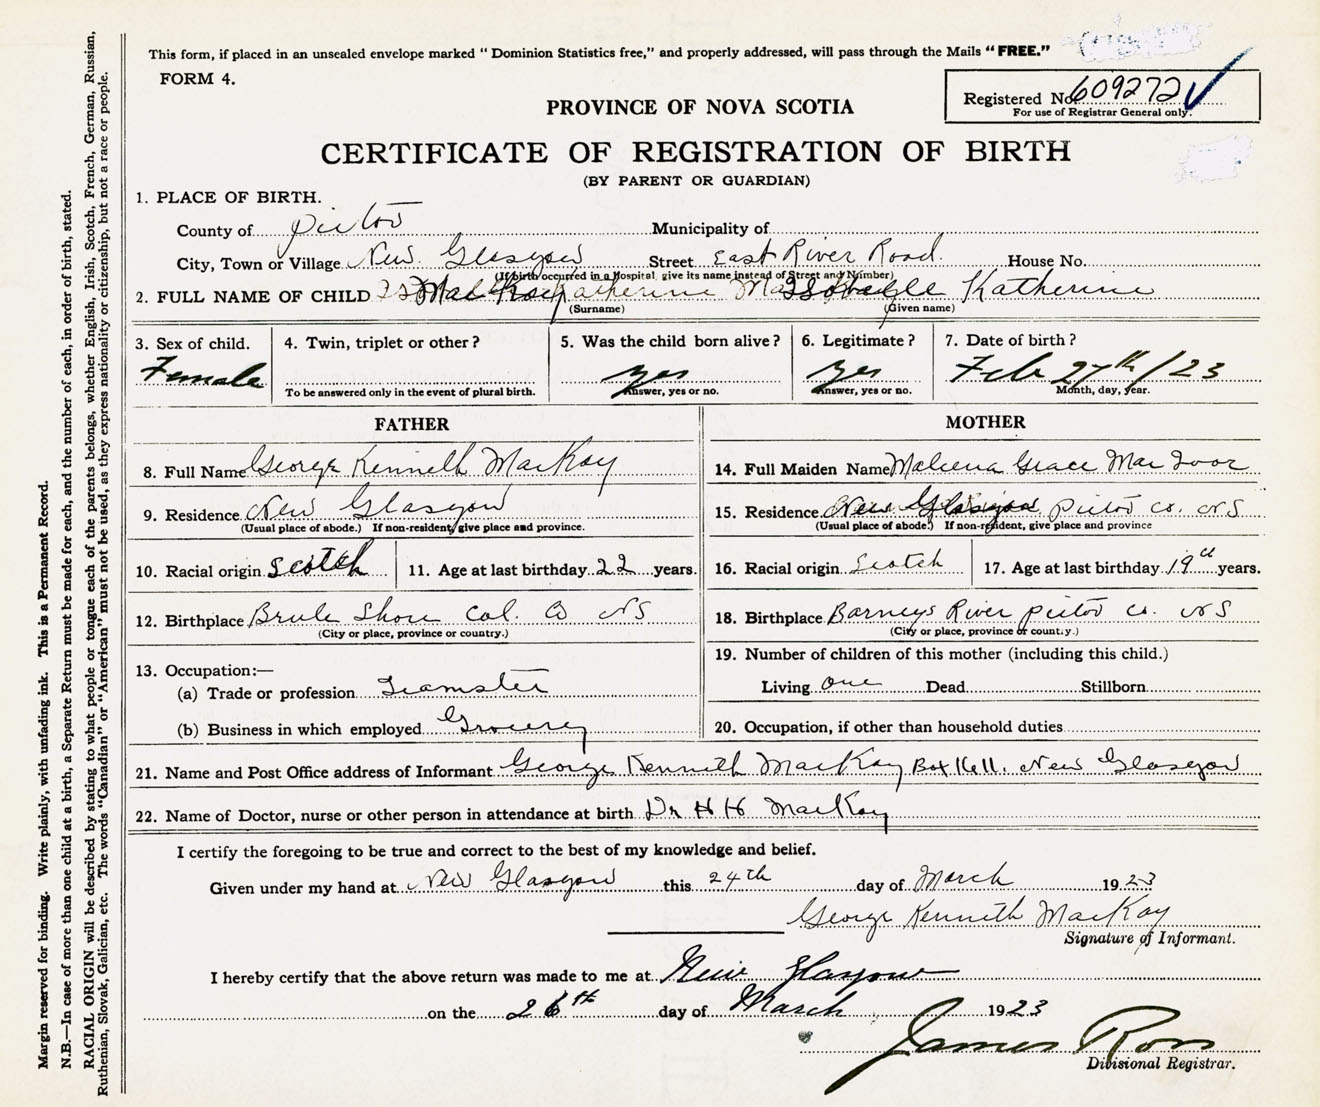 This form, if placed in an unsealed envelope marked " Dominion Statistics free," and properly addressed, will pass through the Mails " FREE."
FORM 4.
Registered No. 609272
For use of Registrar General only.
PROVINCE OF NOVA SCOTIA
CERTIFICATE OF REGISTRATION OF BIRTH
(BY PARENT OR GUARDIAN)
1. PLACE OF BIRTH.
County of Pictou Municipality of
City, Town or Village New Glasgow Street East River Road. House No.
(If birth occurred in a Hospital, give its name instead of Street and Number)
2. FULL NAME OF CHILD MacKay Katherine
(Surname) (Given name)
3. Sex of child. 4. Twin, triplet or other? 5. Was the child born alive? 6. Legitimate? 7. Date of birth?
Female yes yes Feb 27th/23
To be answered only in the event of plural birth. Answer, yes or no. Answer, yes or no. Month, day, year.
FATHER MOTHER
8. Full Name George Kenneth MacKay
14. Full Maiden Name Grace Mac
9. Residence New Glasgow
(Usual place of abode.) If non-resident, give place and province.
15. Residence New Glasgow Pictou Co. NS
(Usual place of abode.) If non-resident, give place and province
10. Racial origin Scotch 11. Age at last birthday 22 years.
16. Racial origin Scotch 17. Age at last birthday 19 years.
12. Birthplace Brule Shore Col. Co NS
(City or place, province or country.)
18. Birthplace Barneys River Pictou Co. NS
(City or place, province or country.)
13. Occupation:—
(a) Trade or profession Teamster
(b) Business in which employed Grocery
19. Number of children of this mother (including this child.)
Living one Dead Stillborn
20. Occupation, if other than household duties
21. Name and Post Office address of Informant George Kenneth MacKay Box New Glasgow
22. Name of Doctor, nurse or other person in attendance at birth Dr H H MacKay
I certify the foregoing to be true and correct to the best of my knowledge and belief.
Given under my hand at New Glasgow this 24th day of March 1923
George Kenneth MacKay
Signature of Informant.
I hereby certify that the above return was made to me at New Glasgow
on the 26th day of March 1923
James Ross
Divisional Registrar.
Margin reserved for binding. Write plainly, with unfading ink. This is a Permanent Record.
N.B.—In case of more than one child at a birth, a Separate Return must be made for each, and the number of each, in order of birth, stated.
RACIAL ORIGIN will be described by stating to what people or tongue each of the parents belongs, whether English, Irish, Scotch, French, German, Russian,
Ruthenian, Slovak, Galician, etc. The words "Canadian" or "American" must not be used, as they express nationality or citizenship, but not a race or people.